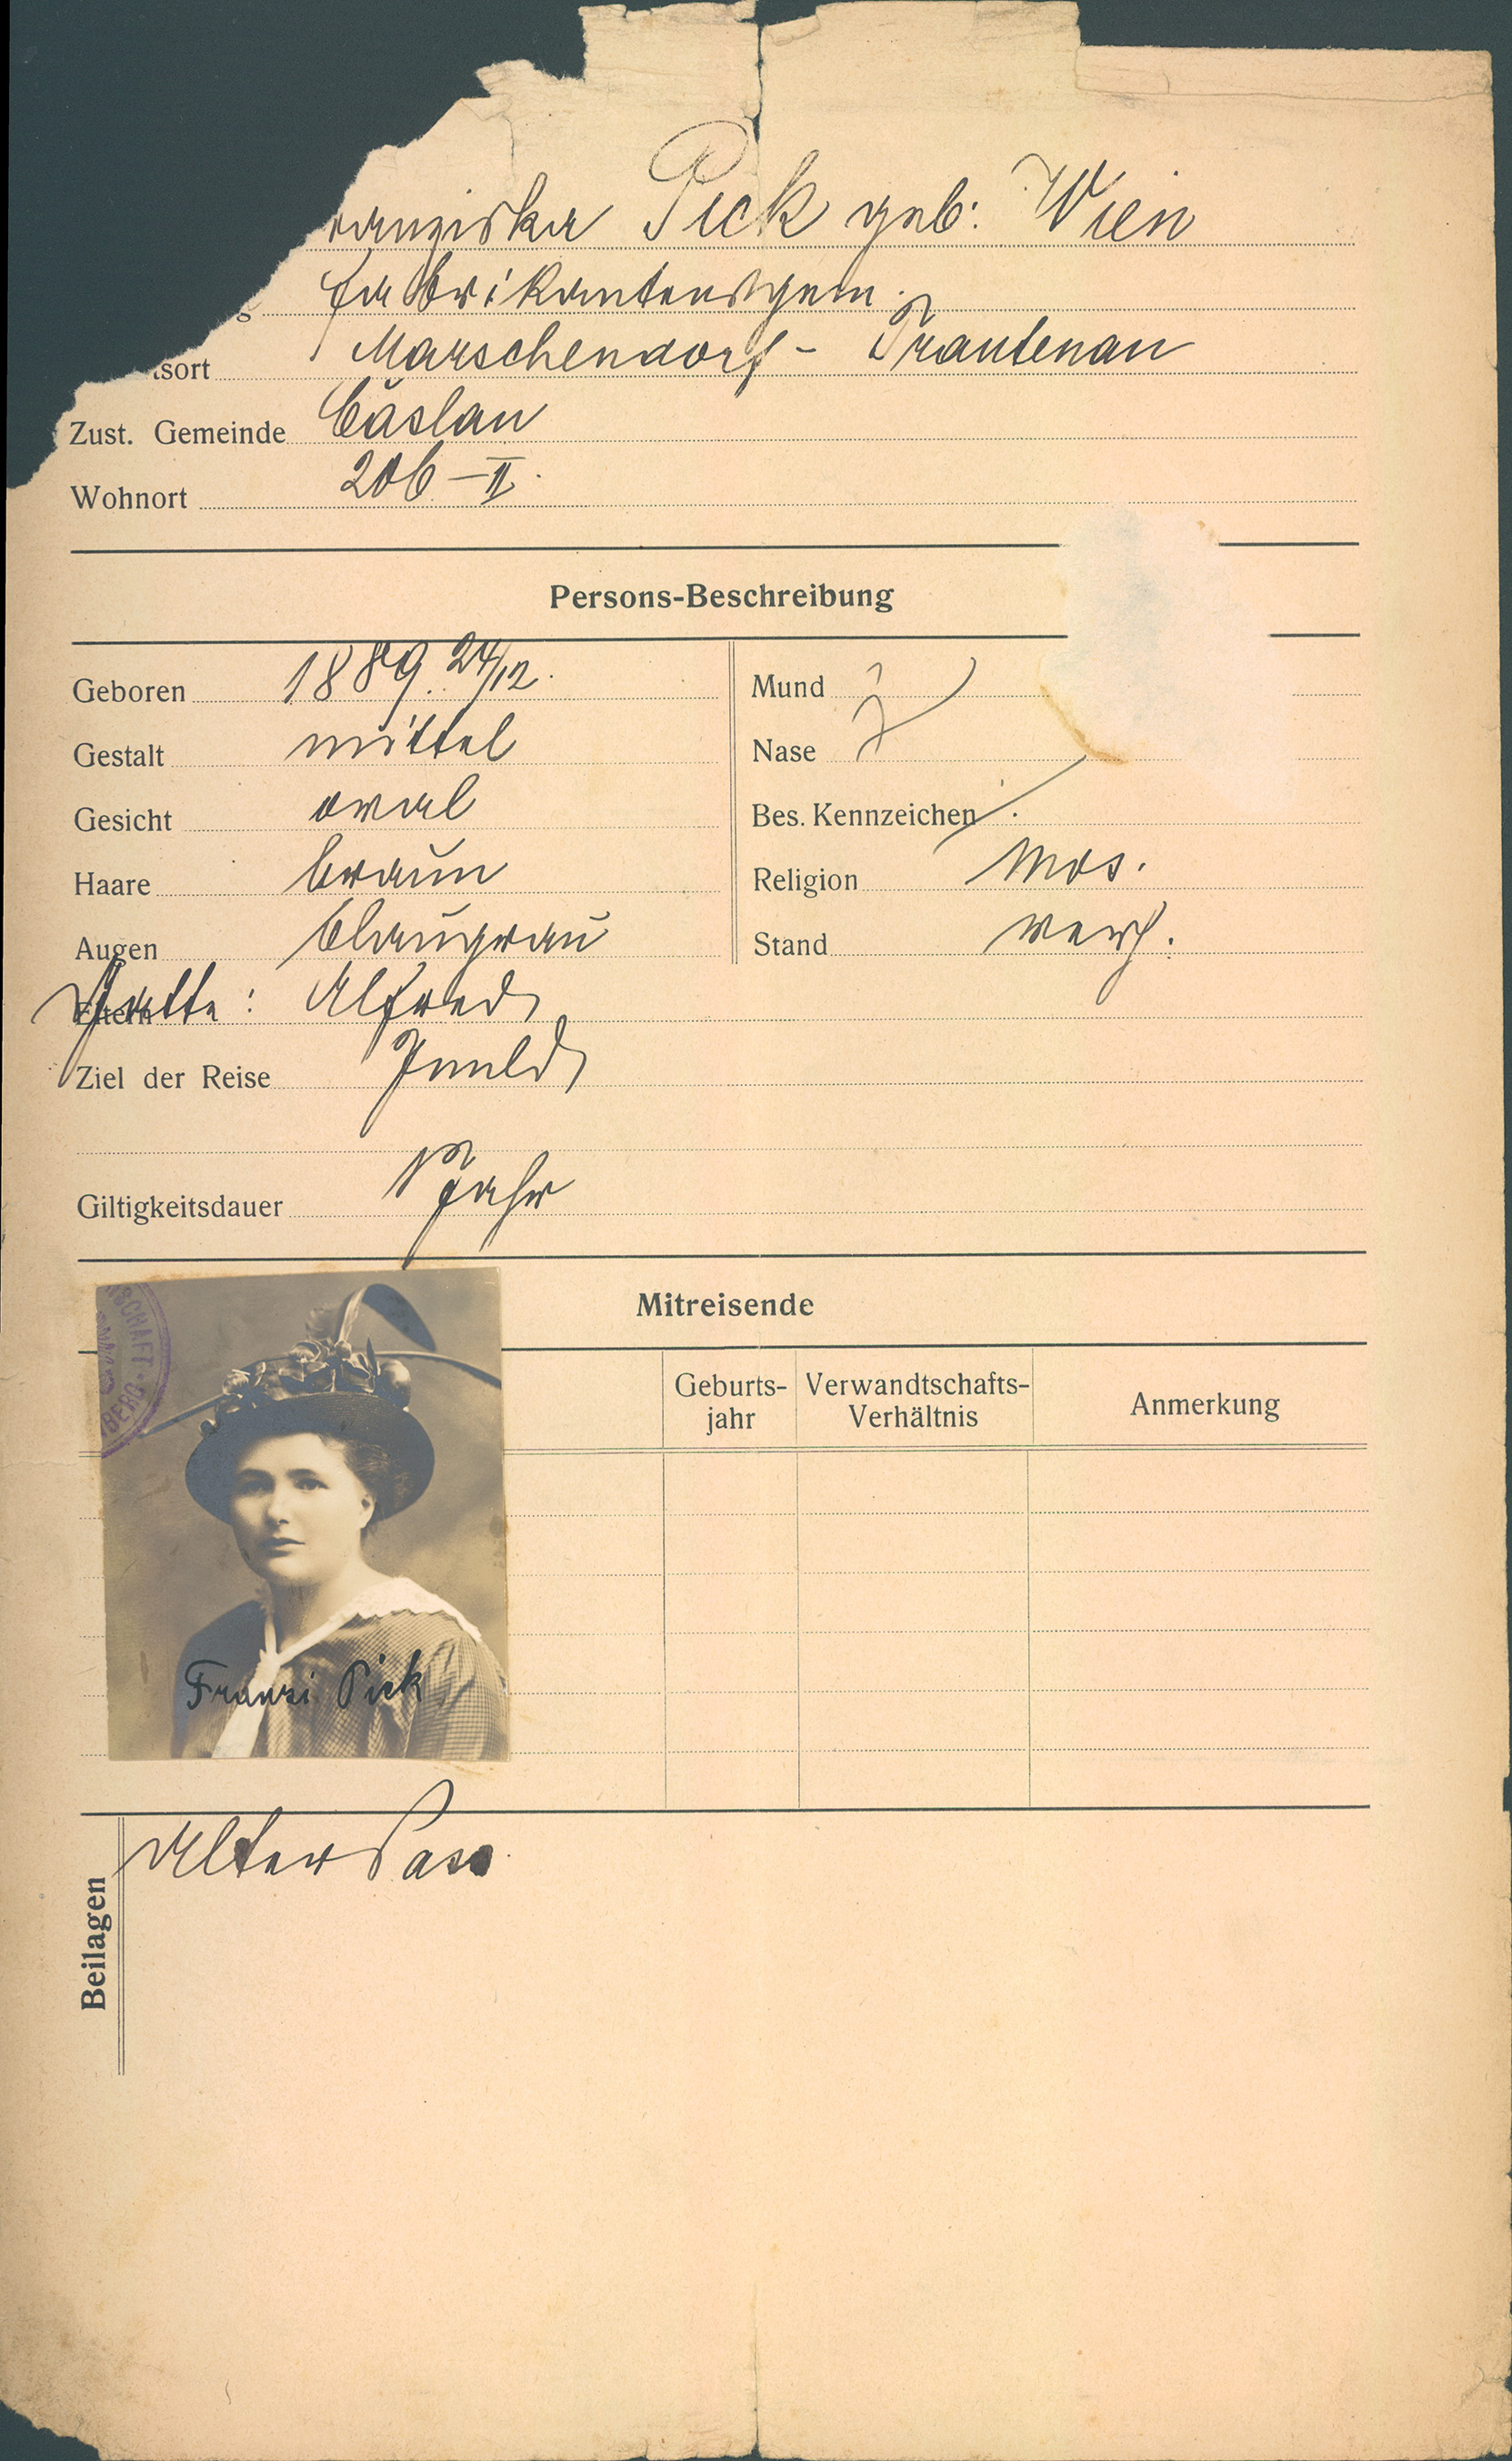 ranziska Pick geb: Wien
g Fabrikantensgem.
tsort Marschendorf - Trautenau
Zust. Gemeinde Čáslau
Wohnort 206-II.
Persons-Beschreibung
Geboren 1889. 24/12.
Gestalt mittel
Gesicht oval
Haare braun
Augen blaugrau
Mund
Nase
Bes. Kennzeichen
Religion mos.
Stand verh.
Eltern Gatte: Alfred
Ziel der Reise Innld
Giltigkeitsdauer 1 Jahr
Mitreisende
Geburts-
jahr
Verwandtschafts-
Verhältnis
Anmerkung
SCHAFT
BERG
Franzi Pick
Beilagen
Alter Pass